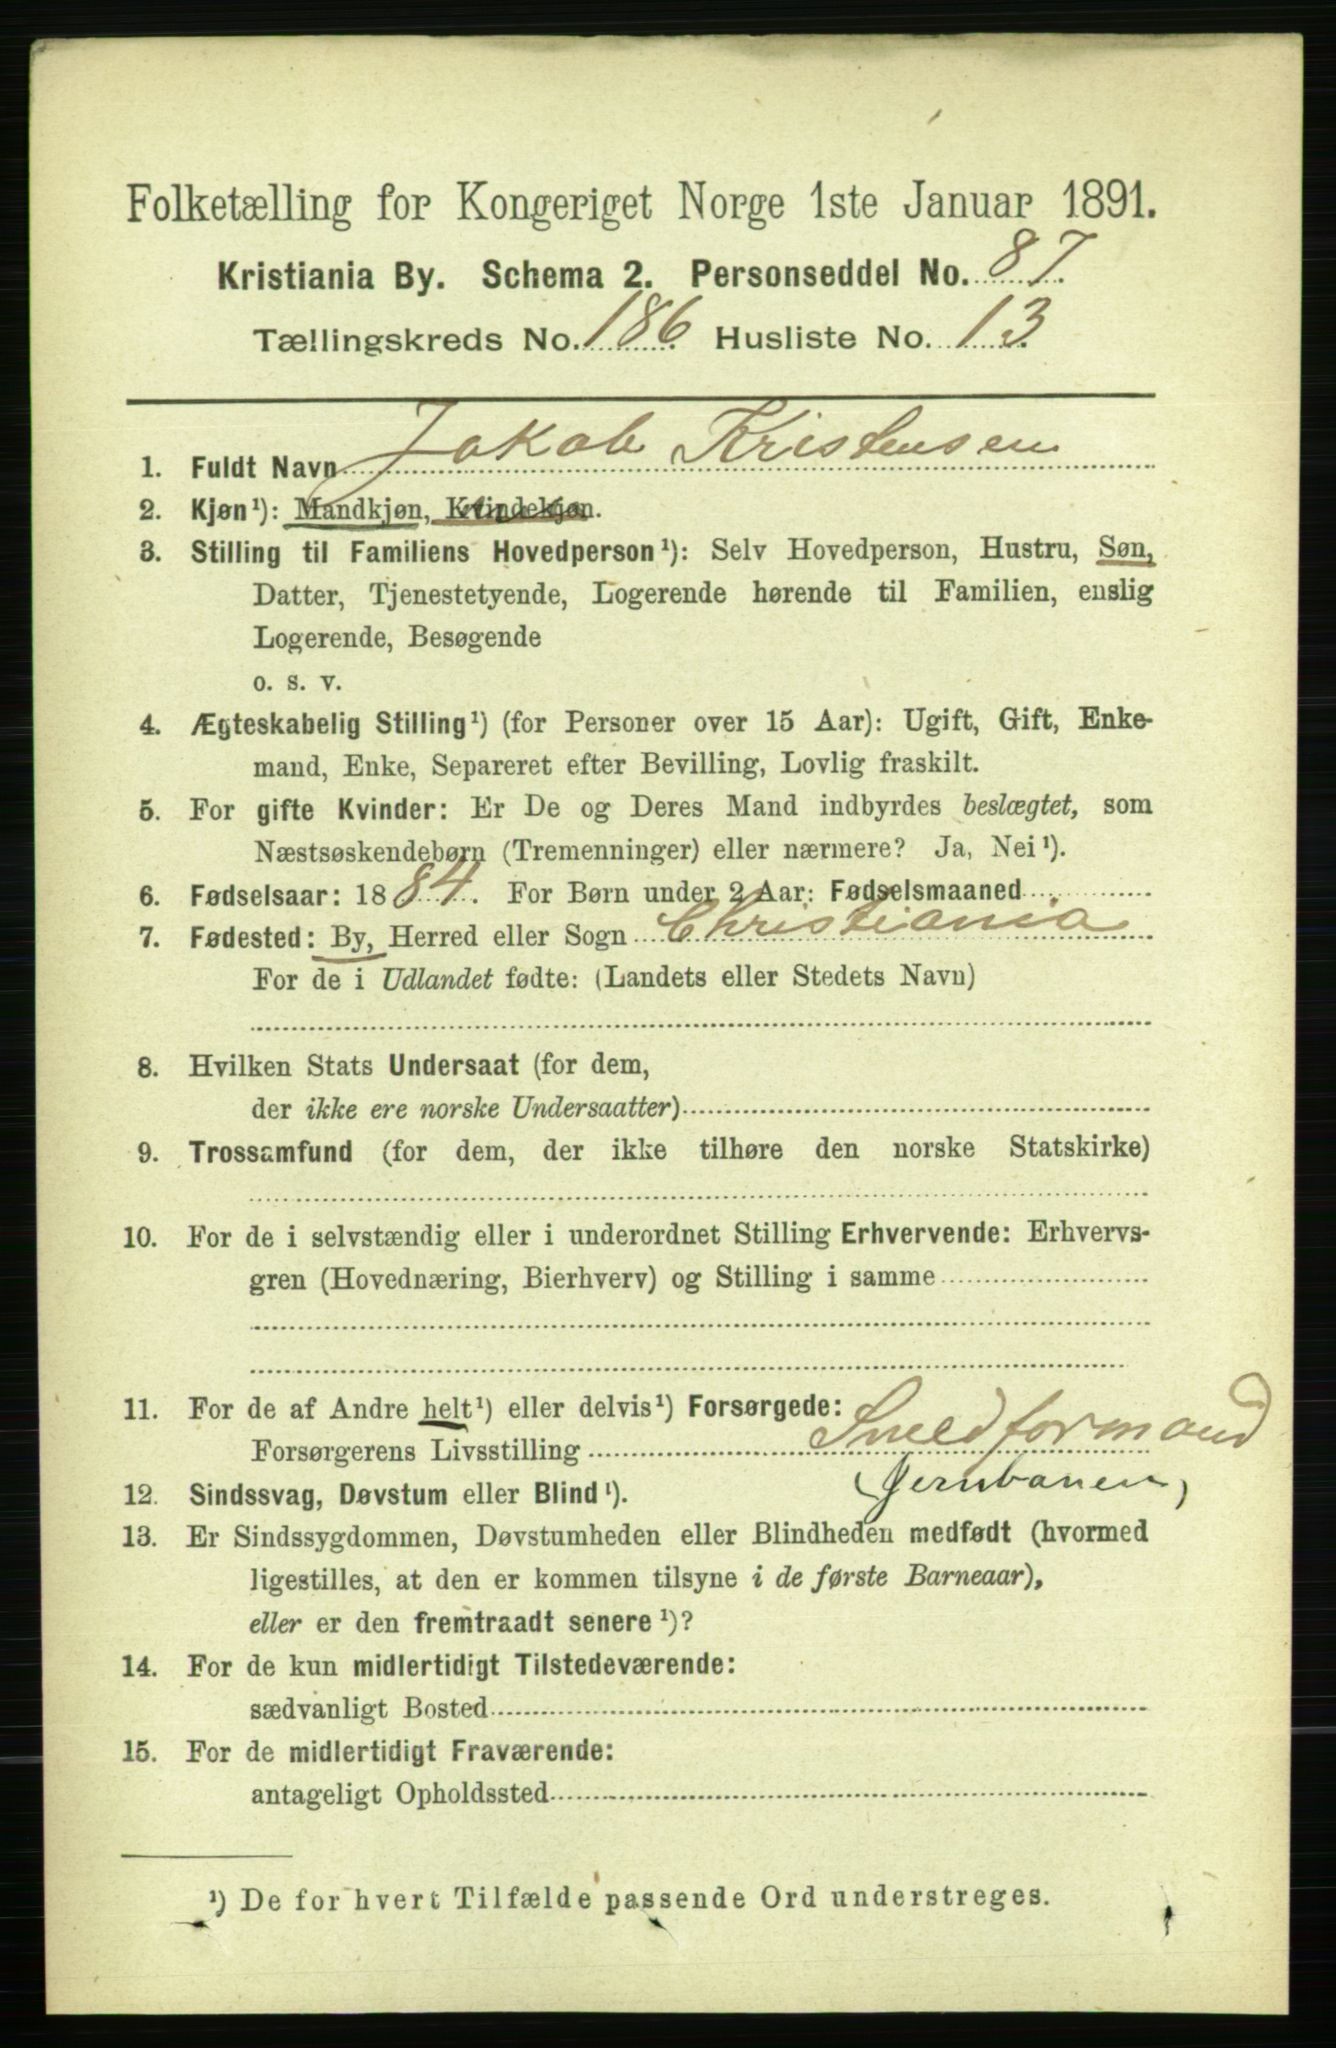 Folketælling for Kongeriget Norge 1ste Januar 1891.
Kristiania By. Schema 2. Personseddel No. 87.
Tællingskreds No. 186 Husliste No. 13.
1. Fuldt Navn Jakob Kristensen
2. Kjøn¹): Mandkjøn, Kvindekjøn.
3. Stilling til Familiens Hovedperson¹): Selv Hovedperson, Hustru, Søn,
Datter, Tjenestetyende, Logerende hørende til Familien, enslig
Logerende, Besøgende
o. s. v.
4. Ægteskabelig Stilling¹) (for Personer over 15 Aar): Ugift, Gift, Enke-
mand, Enke, Separeret efter Bevilling, Lovlig fraskilt.
5. For gifte Kvinder: Er De og Deres Mand indbyrdes beslægtet, som
Næstsøskendebørn (Tremenninger) eller nærmere? Ja, Nei¹).
6. Fødselsaar: 1884. For Børn under 2 Aar: Fødselsmaaned
7. Fødested: By, Herred eller Sogn Christiania
For de i Udlandet fødte: (Landets eller Stedets Navn)
8. Hvilken Stats Undersaat (for dem,
der ikke ere norske Undersaatter)
9. Trossamfund (for dem, der ikke tilhøre den norske Statskirke)
10. For de i selvstændig eller i underordnet Stilling Erhvervende: Erhvervs-
gren (Hovednæring, Bierhverv) og Stilling i samme
11. For de af Andre helt¹) eller delvis¹) Forsørgede:
Forsørgerens Livsstilling Smedformand
(Jernbanen)
12. Sindssvag, Døvstum eller Blind¹).
13. Er Sindssygdommen, Døvstumheden eller Blindheden medfødt (hvormed
ligestilles, at den er kommen tilsyne i de første Barneaar),
eller er den fremtraadt senere¹)?
14. For de kun midlertidigt Tilstedeværende:
sædvanligt Bosted
15. For de midlertidigt Fraværende:
antageligt Opholdssted
¹) De for hvert Tilfælde passende Ord understreges.